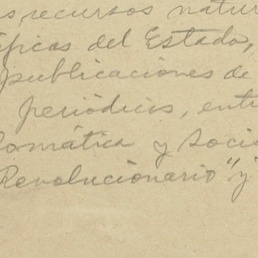 s recursos natur
ficas del Estado,
publicaciones de
periódicos, ent
omática y soci
Revolucionario" y